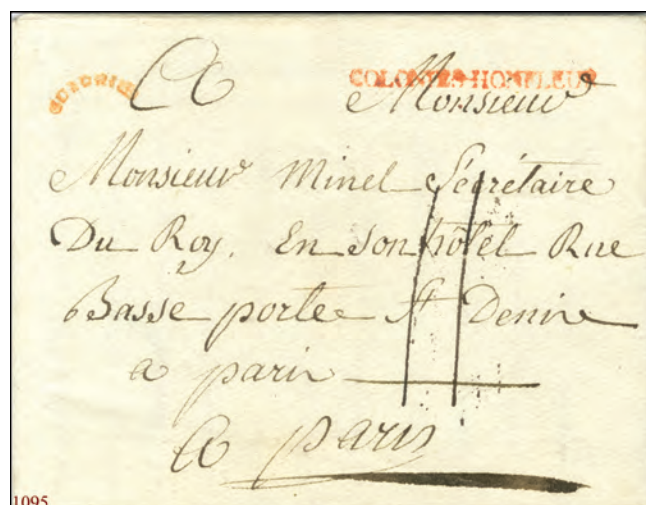 A COLONIES HONFLEUR
Monsieur
Monsieur Minel Sécrétaire
Du Roy. En son hôtel Rue
Basse porte St Denis
a paris
A paris
1095